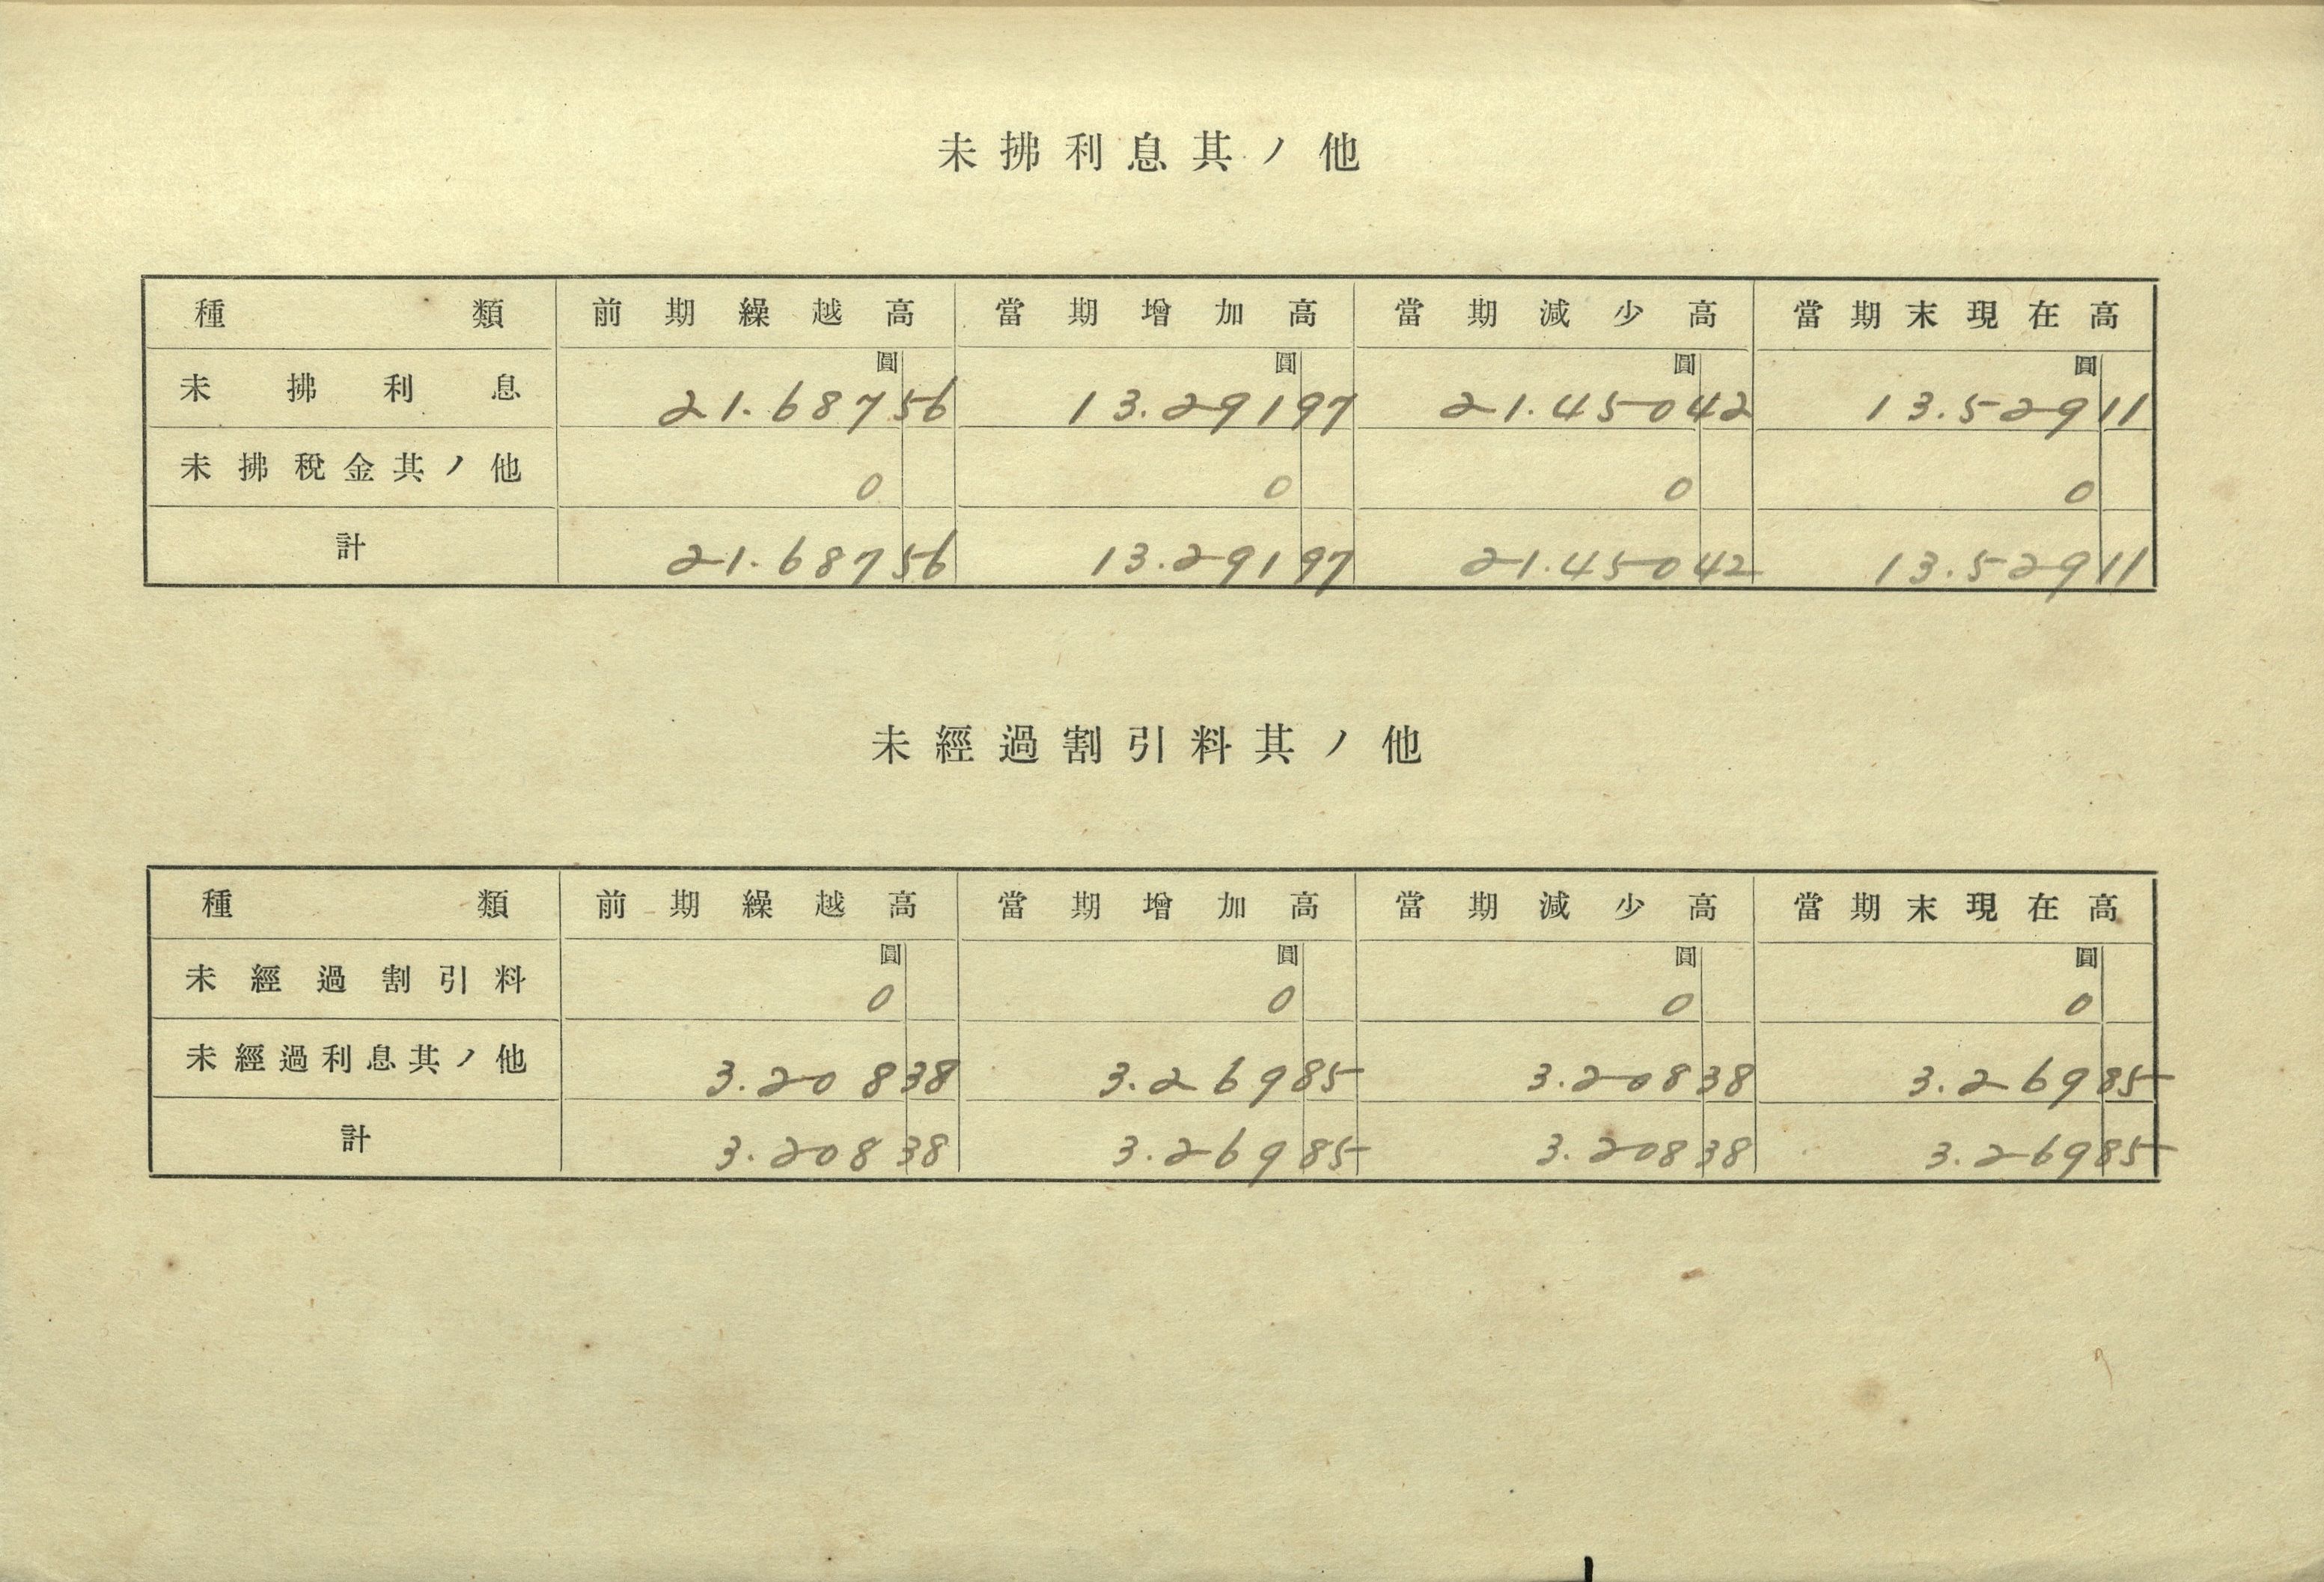 未拂利息其ノ他
種類 前期繰越高 當期增加高 當期減少高 當期末現在高
圓 圓 圓 圓
未拂利息 21.687 56 13.291 97 21.450 42 13.529 11
未拂稅金其ノ他 0 0 0 0
計 21.687 56 13.291 97 21.450 42 13.529 11
未經過割引料其ノ他
種類 前期繰越高 當期增加高 當期減少高 當期末現在高
圓 圓 圓 圓
未經過割引料 0 0 0 0
未經過利息其ノ他 3.208 38 3.269 85 3.208 38 3.269 85
計 3.208 38 3.269 85 3.208 38 3.269 85